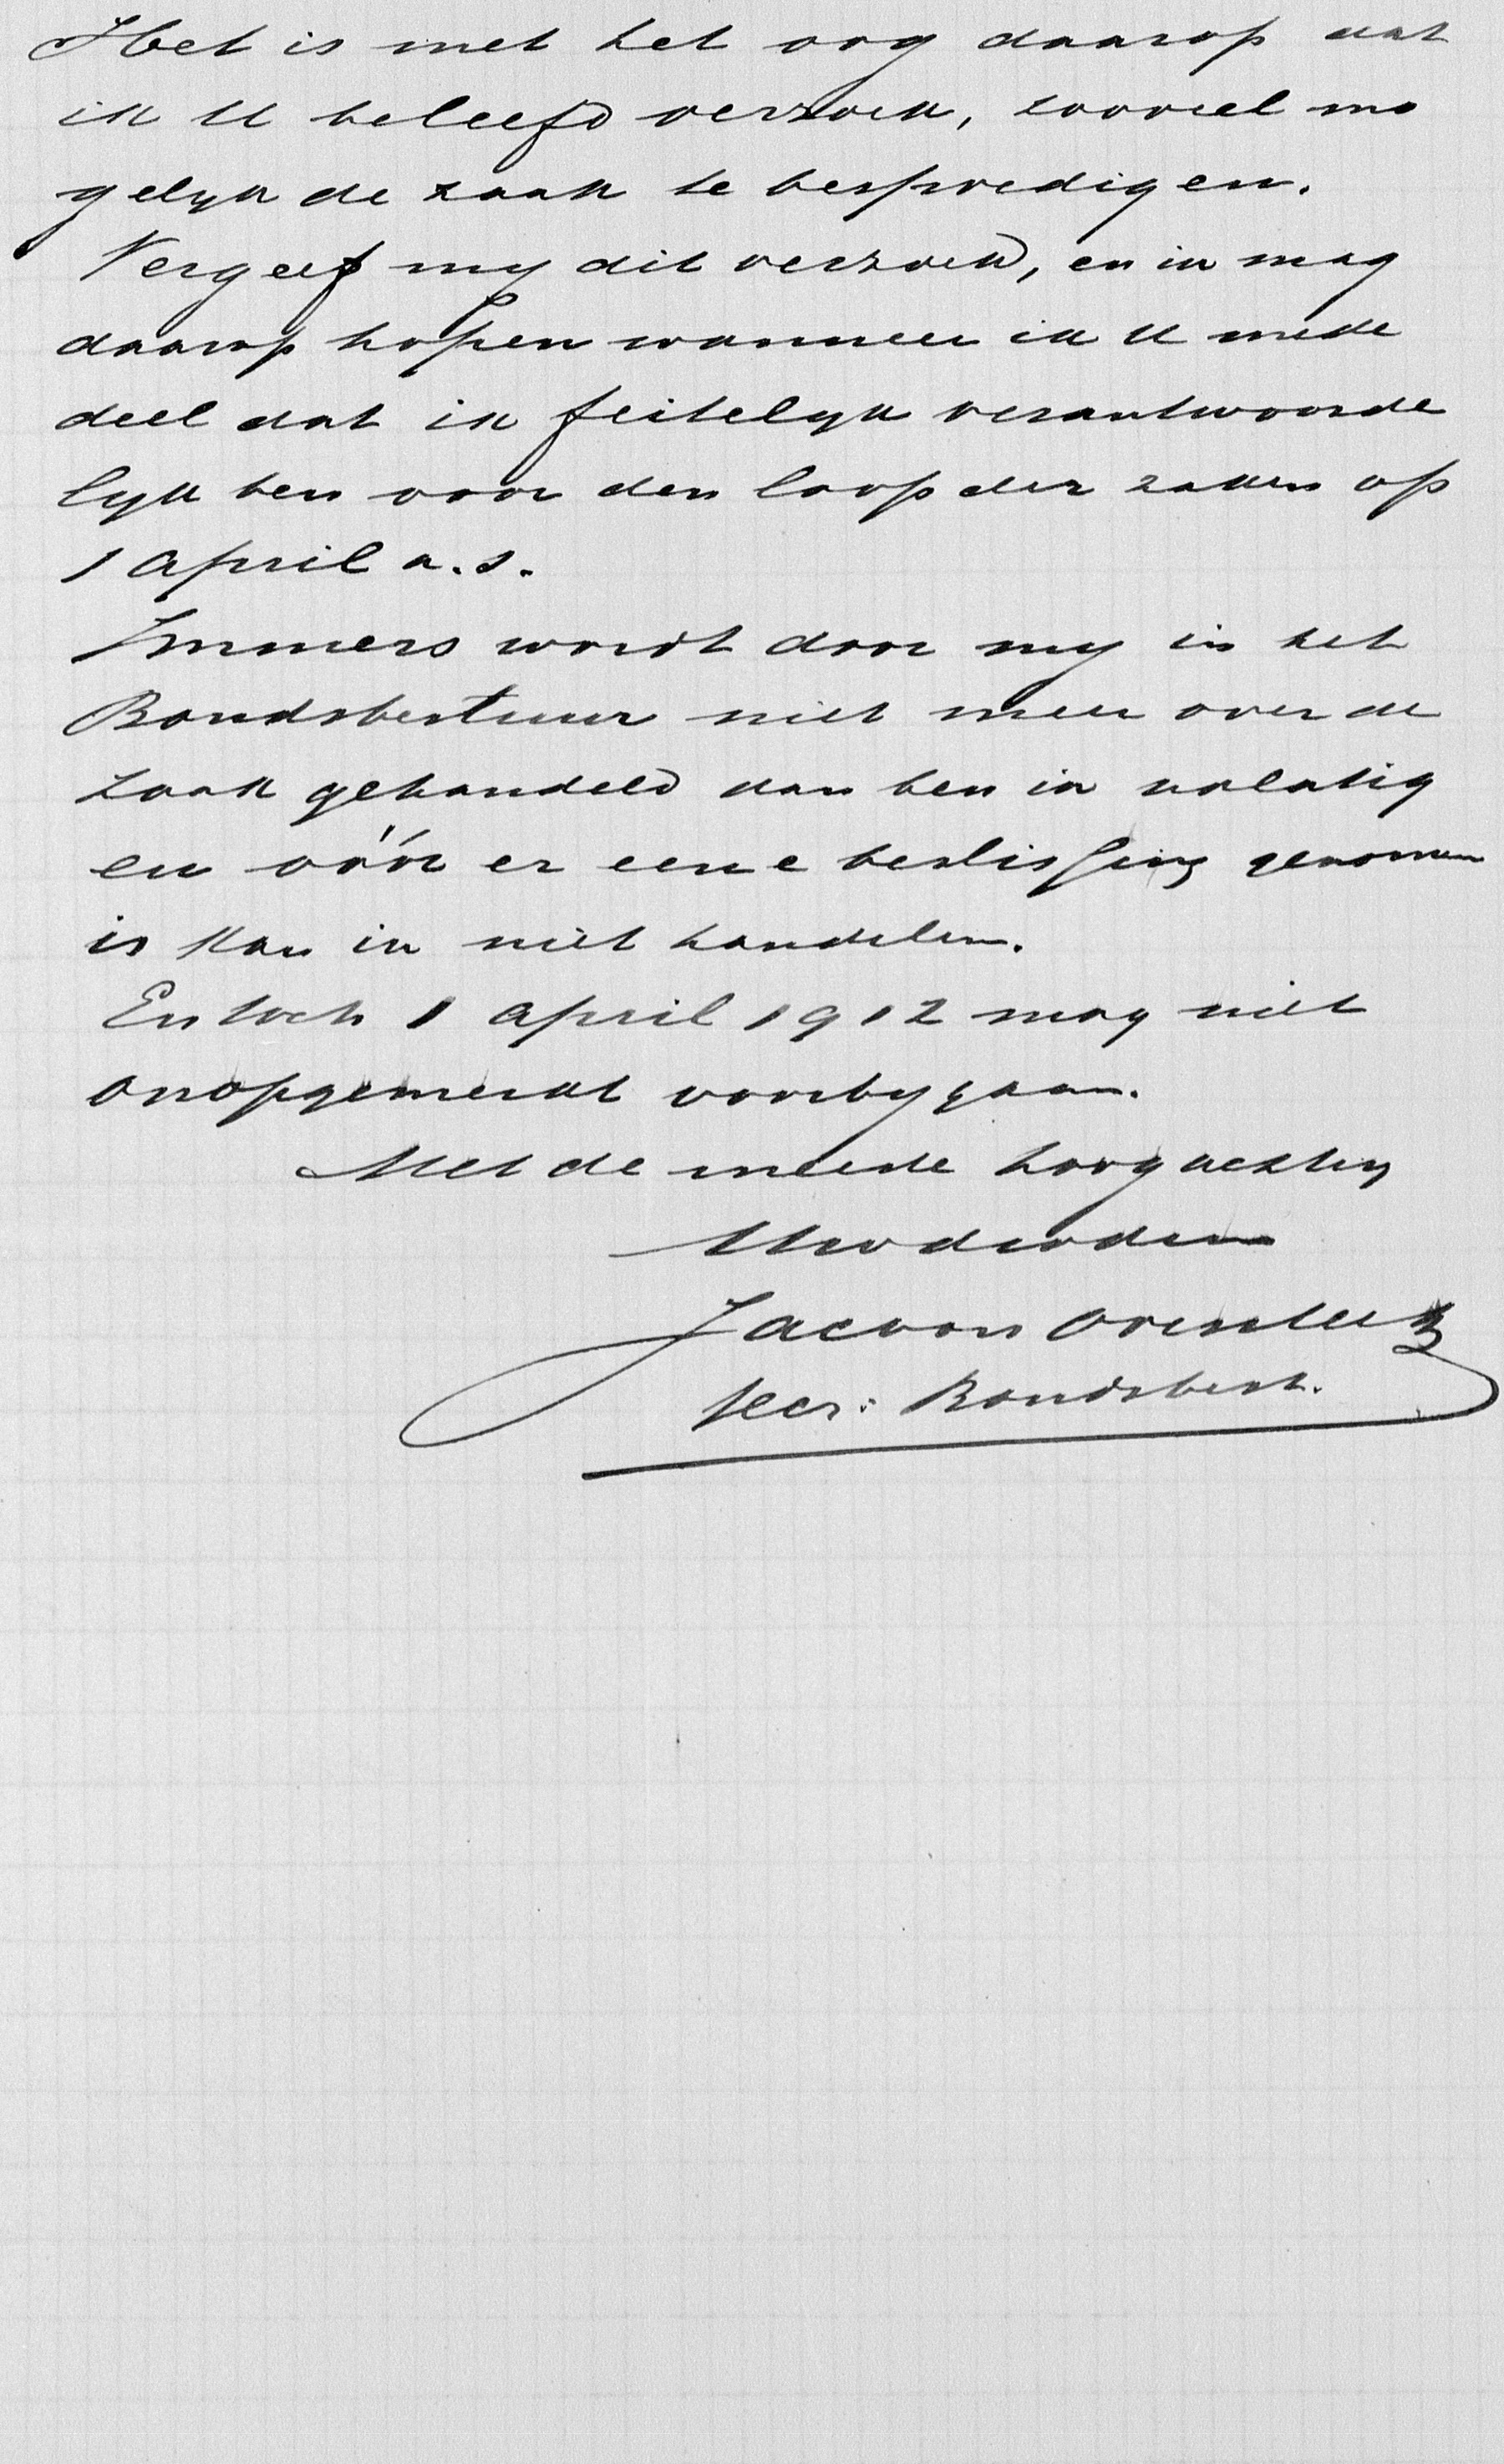 Het is met het oog daarop dat
ik U beleefd verzoek, zooveel mo
gelyk de zaak te bespoedigen.
Vergeef my dit verzoek, en ik mag
daarop hopen wanneer ik U mede
deel dat ik feitelyk verantwoorde
lyk ben voor den loop der zaken op
1 April a.s.
Immers wordt door my in het
Bondsbestuur niet meer over de
zaak gehandeld dan ben ik nalatig
en vóór er eene beslissing genomen
is kan ik niet handelen.
En toch 1 April 1912 mag niet
onopgemerkt voorby gaan.
Met de meeste hoogachting
Uw dienaar
Jac van
Secr: Bondsbest.